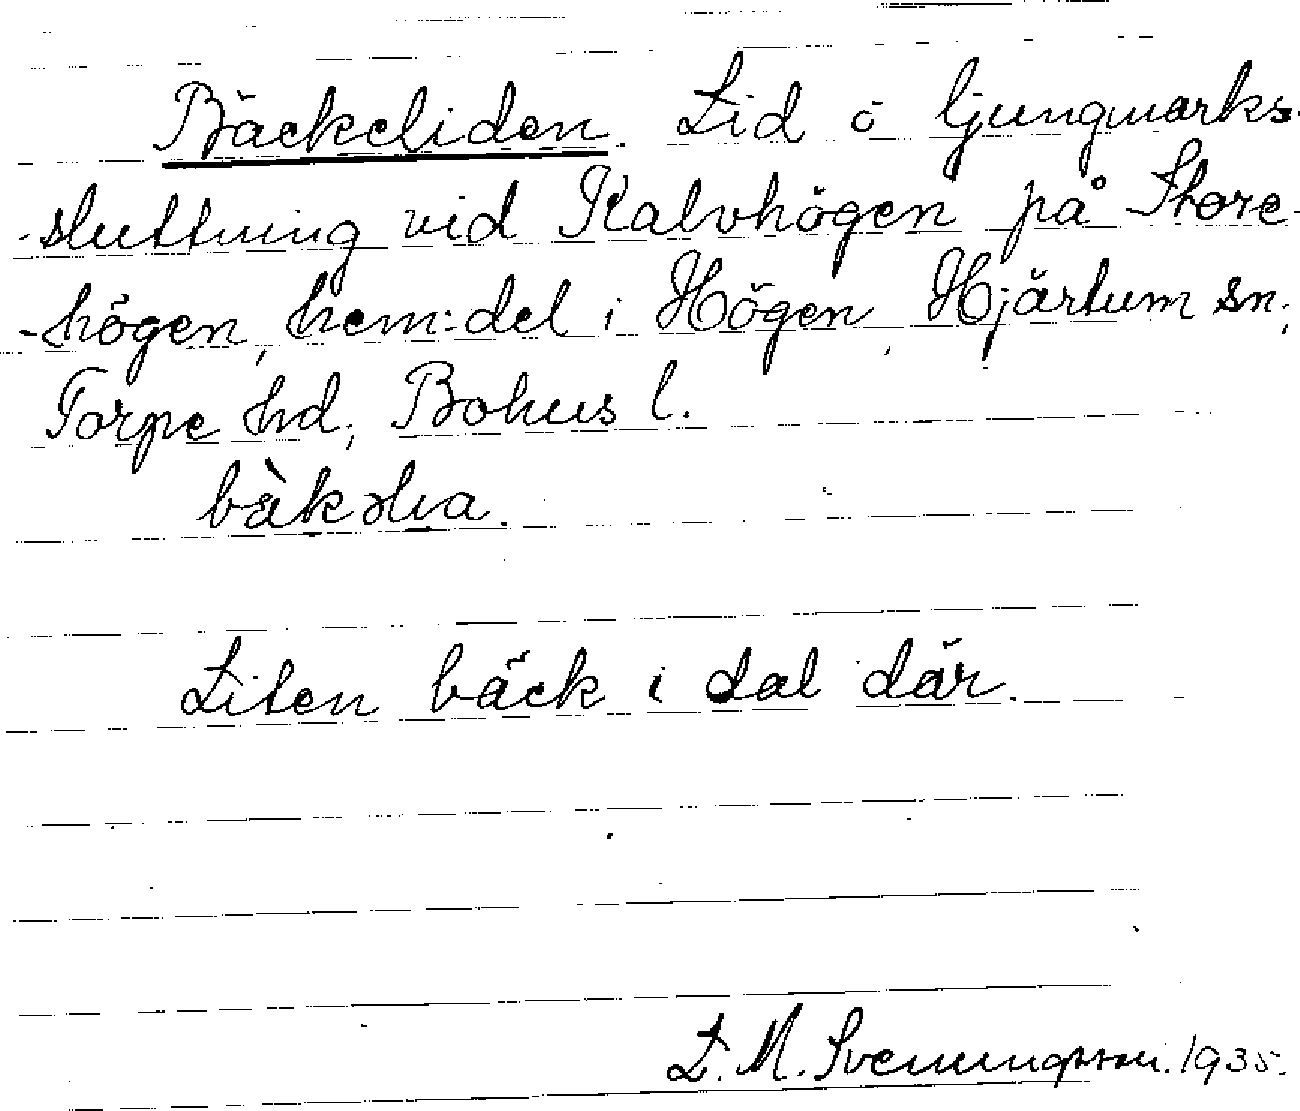 Bäckeliden. Lid ö ljungmarks-
-sluttning vid Kalvhögen på Store-
-högen, hem:del i Högen, Hjärtum sn;
Torpe hd; Bohus l.
bàkəlia.
Liten bäck i dal där.
L. M. Svenungsson. 1935.